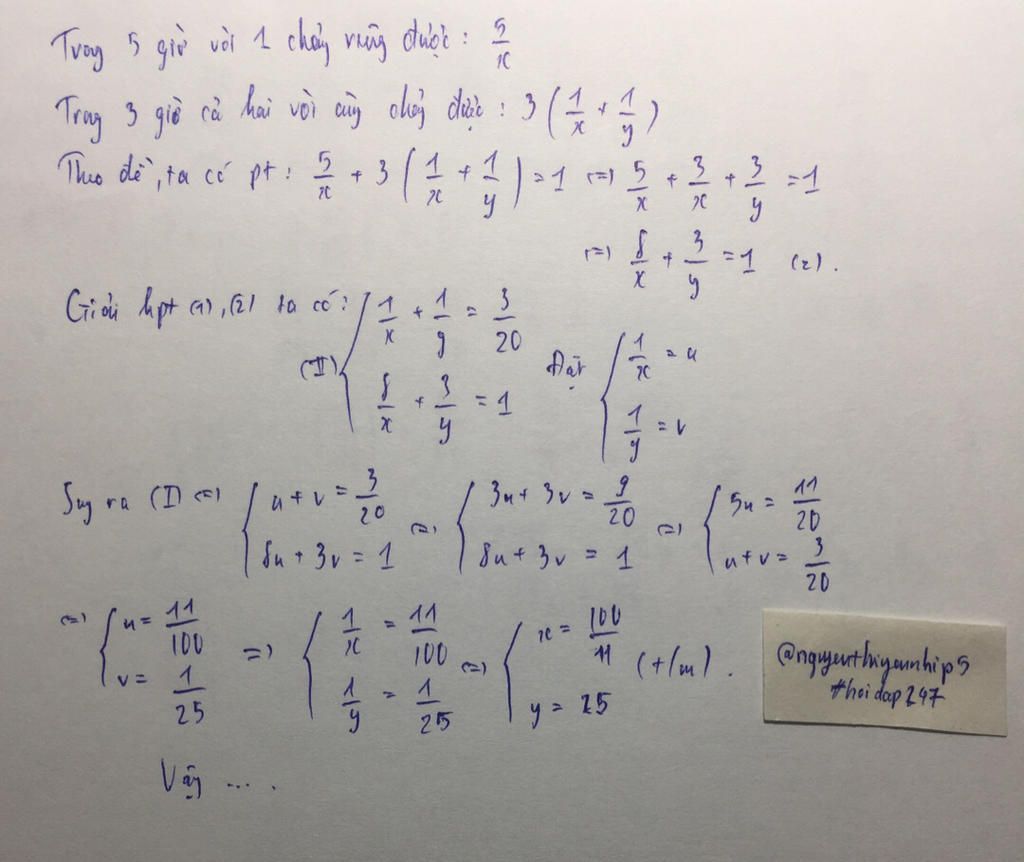 Trong 5 giờ vòi 1 chảy riêng được: 5/x
Trong 3 giờ cả hai vòi cùng chảy được: 3(1/x + 1/y)
Theo đề, ta có pt: 5/x + 3(1/x + 1/y) = 1 <=> 5/x + 3/x + 3/y = 1
<=> 8/x + 3/y = 1 (2).
Giải hpt (1), (2) ta có: (I) { 1/x + 1/y = 3/20 ; 8/x + 3/y = 1 Đặt { 1/x = u ; 1/y = v
Suy ra (I) <=> { u + v = 3/20 ; 8u + 3v = 1 <=> { 3u + 3v = 9/20 ; 8u + 3v = 1 <=> { 5u = 11/20 ; u + v = 3/20
<=> { u = 11/100 ; v = 1/25 => { 1/x = 11/100 ; 1/y = 1/25 <=> { x = 100/11 ; y = 25 (t/m).
@nguyenthiyennhip5
#hoidap247
Vậy ....